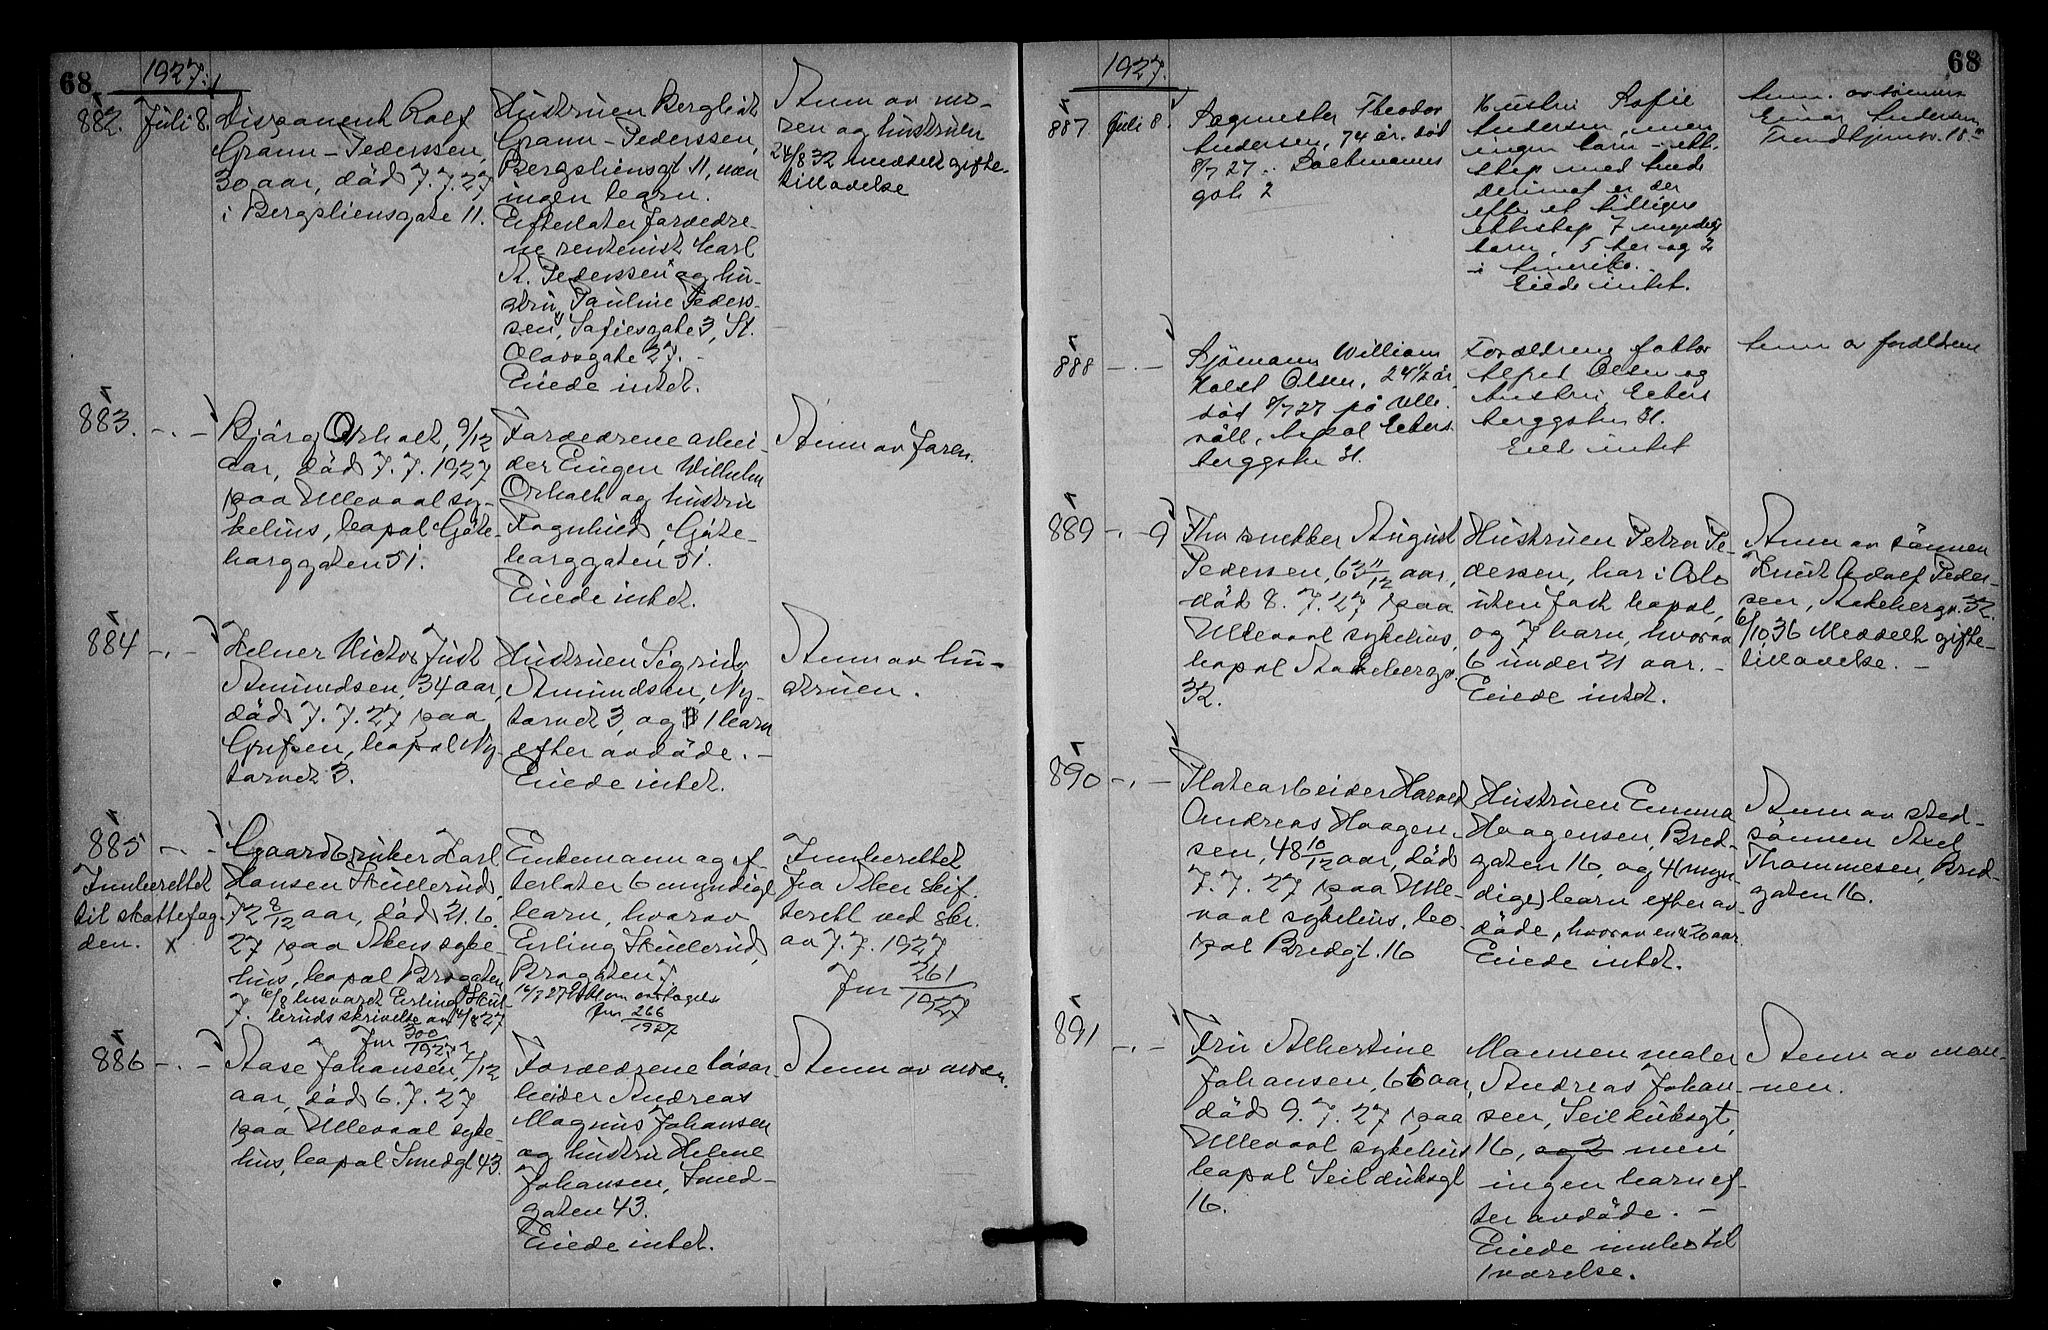 68
1927.
882. Juli 8. Disponent Rolf
Grann-Pederssen,
30 aar, död 7.7.27
i Bergsliensgate 11.
Hustruen Bergliot
Grann-Pederssen,
Bergsliensgt 11, men
ingen barn.
Efterlater foræeldre-
ne rentenist Carl
A. Pederssen og hu-
stru Pauline Peders-
sen, Sofiesgate 3, St.
Olavsgate 27. -
Eiede intet.
Anm av mo-
ren og hustruen
24/8 32 meddelt gifte-
tilladelse
883. -.- Bjärg Orholt, 9/12
aar, död 7.7.1927
paa Ullevaal sy-
kehus, bopæl Göte-
borggaten 51.
Foræeldrene arbei-
der Eugen Wilhelm
Orholt og hustru
Ragnhild, Göte-
borggaten 51.
Eiede intet.
Anm av faren.
884 -.- Helner Victor Just
Amundsen, 34 aar,
död 7.7.27 paa
Grefsen, bopæl Ny-
torvet 3.
Hustruen Sigrid
Amundsen, Ny-
torvet 3, og 1 barn
efter avdöde. -
Eiede intet.
Anm av hu-
struen.
885 -.-
Innberettet
til skattefog-
den. x
Gaardbruker Karl
Hansen Hullerud,
72 8/12 aar, död 21.6.
27 paa Akers syke-
hus, bopæl Brogaten
7. 6/8 besvaret Erling Hul-
leruds skrivelse av 4/8 27
Jnr 300/1927
Enkemann og ef-
terlater 6 myndige
barn, hvorav
Erling Hullerud,
Brogaten 7.
Jnr 266/1927
Innberettet
fra Aker skif-
terett ved skr.
av 7.7.1927
Jnr 261/1927
886 -.- Aase Johansen, 4/12
aar, död 6.7.27
paa Ullevaal syke-
hus, bopæl Smedgt 43.
Foræeldrene lösar-
beider Andreas
Magnus Johansen
og hustru Helene
Johansen, Smed-
gaten 43.
Eiede intet.
Anm av moren.
68
1927.
887 Juli 8. Sagmester Theodor
Andersen, 74 år. död
8/7 27.
gate 2
Hustru Sofie
Andersen, men
ingen barn i ekte-
skap med hende
derimot er der
efter et tidligere
ekteskap 7 myndige
barn, 5 her og 2
i Amerika.
Eiede intet.
Anm. av sönnen
Einar Andersen,
Trondhjemsv. 18
888 -.- Sjömann William
Holst Olsen, 24 1/2 år,
död 8/7 27 på Ulle-
våll, bopæl Eckers-
berggatn 31.
Forældrene faktor
Alfred Olsen og
hustru, Eckers-
berggatn 31.
Eied intet
Anm av forældrene
889 -.- 9 Fhv snekker August
Pedersen, 63 11/12 aar,
död 8.7.27 paa
Ullevaal sykehus,
bopæl Akebergv.
32.
Hustruen Petra Pe-
dersen, har i Oslo
uten fast bopæl,
og 7 barn, hvorav
6 under 21 aar. -
Eiede intet.
Anm av sönnen
Knut Adolf Peder-
sen, Akebergv. 32.
6/10 36 Meddelt gifte-
tilladelse. -
890 -.- Platearbeider Harald
Andreas Haagen-
sen, 48 10/12 aar, död
7.7.27 paa Ulle-
vaal sykehus, bo-
pæl Bredgt. 16
Hustruen Emma
Haagensen, Bred-
gaten 16, og 4 (myn-
dige) barn efter av-
döde, hvorav en 20 aar.
Eiede intet.
Anm av sted-
sönnen Axel
Thommesen, Bred-
gaten 16.
891 -.- Fru Albertine
Johansen, 66 aar,
död 9.7.27 paa
Ullevaal sykehus
bopæl Seilduksgt
16.
Mannen maler
Andreas Johan-
sen, Seilduksgt
16, og 2 men
ingen barn ef-
ter avdöde. -
Eiede innbo til
1 værelse.
Anm av man-
nen.